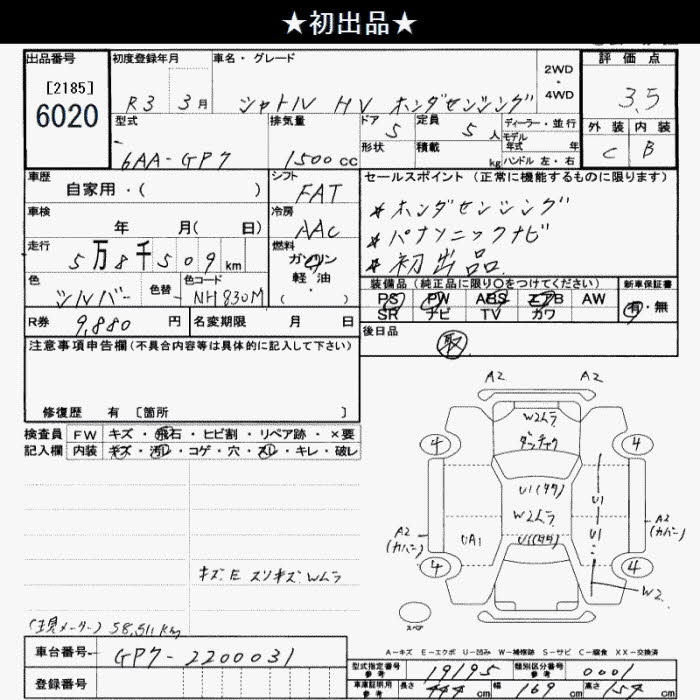 ★初出品★
出品番号 初度登録年月 車名・グレード 2WD ・ 4WD 評価点
[2185]
6020
R3 3月 シャトル HV ホンダセンシング 3.5
型式 排気量 ドア 5 定員 5人 ディーラー・並行 外装 内装
モデル年式 年
6AA-GP7 1500cc 形状 積載 kg ハンドル 左・右 C B
車歴 シフト セールスポイント(正常に機能するものに限ります)
自家用・( ) FAT
車検 冷房 *ホンダセンシング
年 月( 日) AAC *パナソニックナビ
走行 5万8千509km 燃料 ガソリン 軽油・( ) *初出品
色 シルバー 色替 色コード NH830M 装備品(純正品に限り○をつけてください) 新車保証書
PS PW ABS エアB AW 有・無
SR ナビ TV カワ
R券 9,880円 名変期限 月 日 後日品
取
注意事項申告欄(不具合内容等は具体的に記入して下さい)
修復歴 有 〔箇所 〕
検査員 FW キズ・飛石・ヒビ割・リペア跡・×要
記入欄 内装 キズ・汚レ・コゲ・穴・スレ・キレ・破レ
A2 A2
W2ムラ
4 4
U1(タタ)
U1
W2ムラ
A2 (カバー) UA1 U1(タタ) U1 A2 (カバー)
4 4
W2
キズ.E スリキズ Wムラ
スペア
(現メーター) 58,511km
A-キズ E-エクボ U-凹み W-補修跡 S-サビ C-腐食 XX-交換済
車台番号 GP7-2200031
型式指定番号 参考 19195 類別区分番号 参考 0001
登録番号
車庫証明用 参考 長さ 444cm 幅 169cm 高さ 154cm